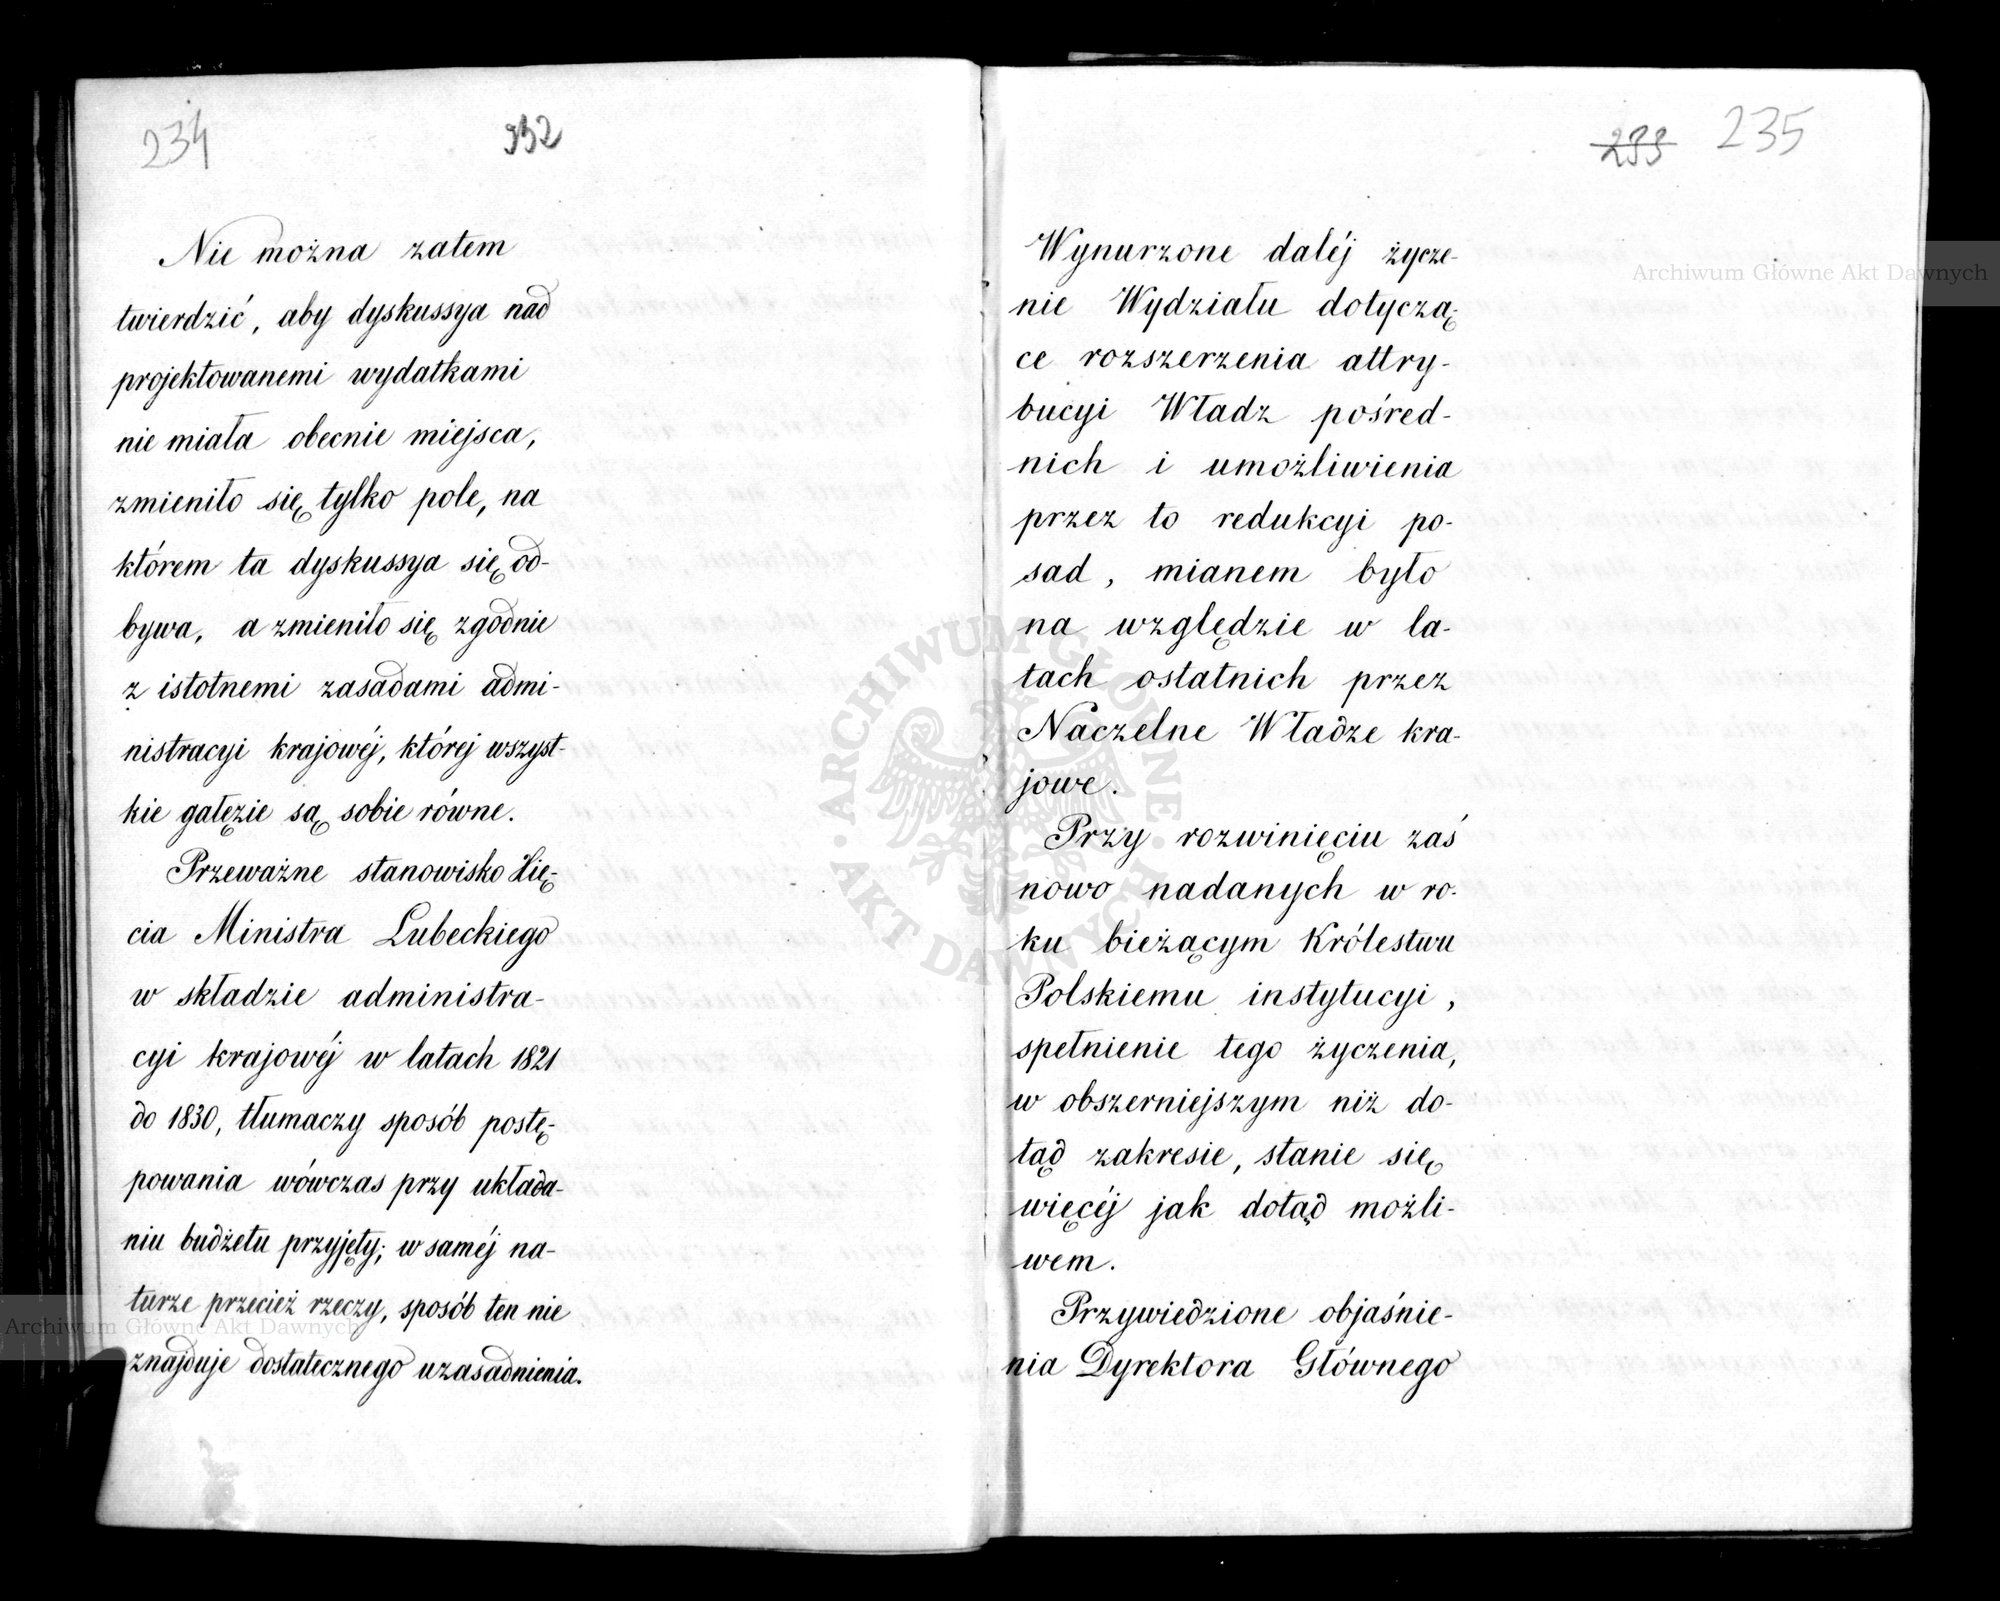 234
232
Nie można zatem
twierdzić, aby dyskussya nad
projektowanemi wydatkami
nie miała obecnie miejsca,
zmieniło się tylko pole, na
którem ta dyskussya się od-
bywa, a zmieniło się zgodnie
z istotnemi zasadami admi-
nistracyi krajowéj, której wszyst-
kie gałęzie są sobie równe.
Przeważne stanowisko Xię-
cia Ministra Lubeckiego
w składzie administra-
cyi krajowéj w latach 1821
do 1830, tłumaczy sposób postę-
powania wówczas przy układa-
niu budżetu przyjęty; w saméj na-
turze przecież rzeczy, sposób ten nie
znajduje dostatecznego uzasadnienia.
233 235
Wynurzone daléj życze-
nie Wydziału dotyczą-
ce rozszerzenia attry-
bucyi Władz pośred-
nich i umożliwienia
przez to redukcyi po-
sad, mianem było
na względzie w la-
tach ostatnich przez
Naczelne Władze kra-
jowe.
Przy rozwinięciu zaś
nowo nadanych w ro-
ku bieżącym Królestwu
Polskiemu instytucyi,
spełnienie tego życzenia,
w obszerniejszym niż do-
tąd zakresie, stanie się
więcéj jak dotąd możli-
wem.
Przywiedzione objaśnie-
nia Dyrektora Głównego
Archiwum Główne Akt Dawnych
Archiwum Główne Akt Dawnych
ARCHIWUM GŁÓWNE AKT DAWNYCH